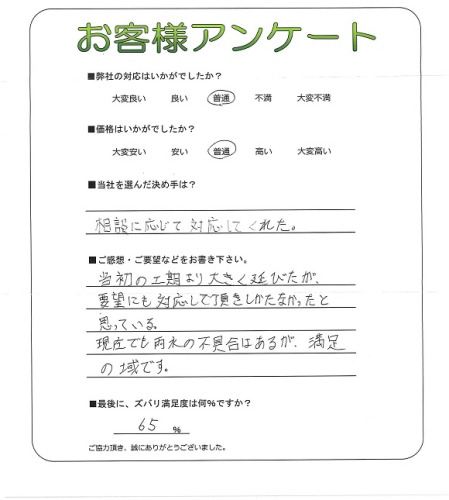 お客様アンケート
■弊社の対応はいかがでしたか?
大変良い 良い 普通 不満 大変不満
■価格はいかがでしたか?
大変安い 安い 普通 高い 大変高い
■当社を選んだ決め手は?
相談に応じて対応してくれた。
■ご感想・ご要望などをお書き下さい。
当初の工期より大きく延びたが、
要望にも対応して頂きしかたなかったと
思っている。
現在でも雨水の不具合はあるが、満足
の域です。
■最後に、ズバリ満足度は何%ですか?
65 %
ご協力頂き、誠にありがとうございました。